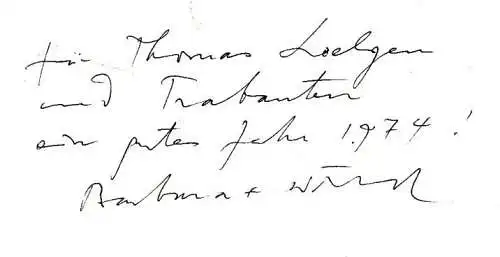 für Thomas Loelgen
und Trabanten
ein gutes Jahr 1974!
Barbara +